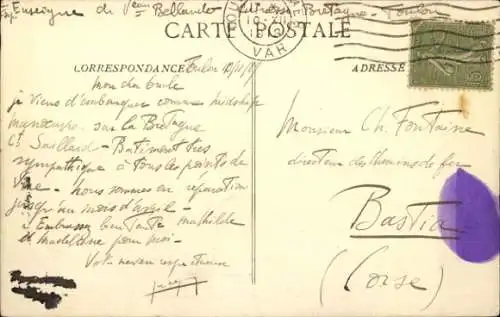 Enseigne de Jean Bellando cuirassé Bretagne - Toulon
CARTE POSTALE
VAR
CORRESPONDANCE
ADRESSE
Toulon
Mon cher oncle
je viens d'embarquer comme midship
manœuvre sur la Bretagne
Ct Saillard - Bâtiment très
sympathique à tous les points de
vue - nous sommes en réparation
jusqu'au mois d'avril
Embrassez ma tante Mathilde
et Madeleine pour moi -
Votre neveu respectueux
Monsieur Ch. Fontaine
directeur des chemins de fer
Bastia
(Corse)